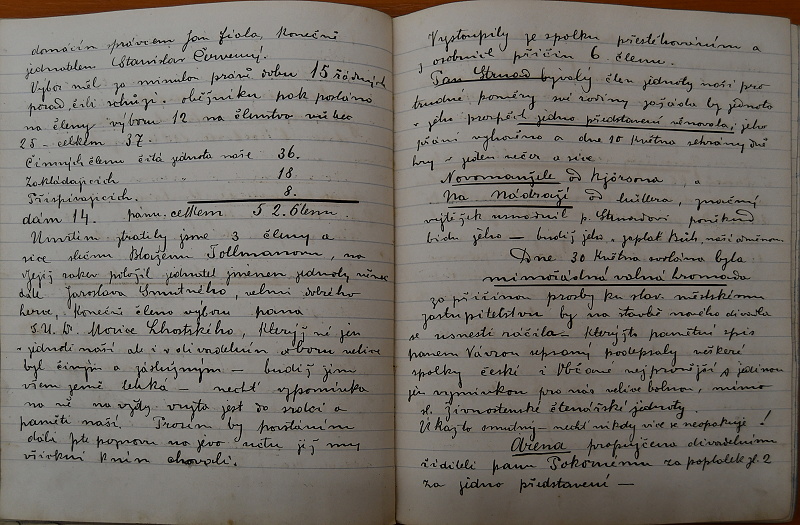 domácím správcem Jan Fiala, konečně
jednatelem Stanislav Červený.
Výbor měl za minulou dobu 15 řádných
porad, čili schůzí. oběžníků pak posláno
na členy výboru 12 na členstvo vůbec
25 - celkem 37.
Činných členů čítá jednota naše 36.
Zakládajících 18
Přispívajících. 8.
dám 14. pánů. celkem 52. členů.
Úmrtím ztratily jsme 3 členy a
sice slečnu Blaženu Tollmanovu, na
její rakev položil jednatel jménem jednoty věnec
dále Jaroslava Smutného, velmi dobrého
herce, konečně člena výboru pana
J.U.Dr. Morice Lhotského, který né jen
jednotě naší ale i v divadelním oboru velice
byl činným a záslužným — budiž jim
všem země lehká — nechť vzpomínka
na ně na vždy vryta jest do srdcí a
paměti naší. Prosím by povstáním
dali jste na jevo úctu již my
všickni k nim chovali.
Vystoupily ze spolku přestěhováním a
z osobních příčin 6 členů.
Pan Strnad bývalý člen jednoty naší pro
trudné poměry své rodiny zažádal by jednota
v jeho prospěch jedno představení věnovala; jeho
přání vyhověno a dne 10 května sehrány dvě
hry v jeden večer a sice.
Novomanželé od Björsona, a
Na Nádraží od Müllera, značný
výtěžek usnadnil p. Strnadovi poněkud
bídu jeho — budiž jeho „zaplať Bůh" naší odměnou.
Dne 30 května svolána byla
mimořádná valná hromada
za příčinou prosby ku slav. městskému
zastupitelstvu by na stavbě nového divadla
se usnésti ráčilo — kterýžto pamětní spis
panem Vávrou upsaný podepsaly veškeré
spolky české i Občané nejpřednější s jedinou
jen výminkou pro nás velice bolnou, mimo
sl. Živnostenské čtenářské jednoty.
Úkaz to smutný — nechť nikdy více se neopakuje!
Arena propůjčena divadelnímu
řediteli panu Pokornému za poplatek zl. 2
za jedno představení —